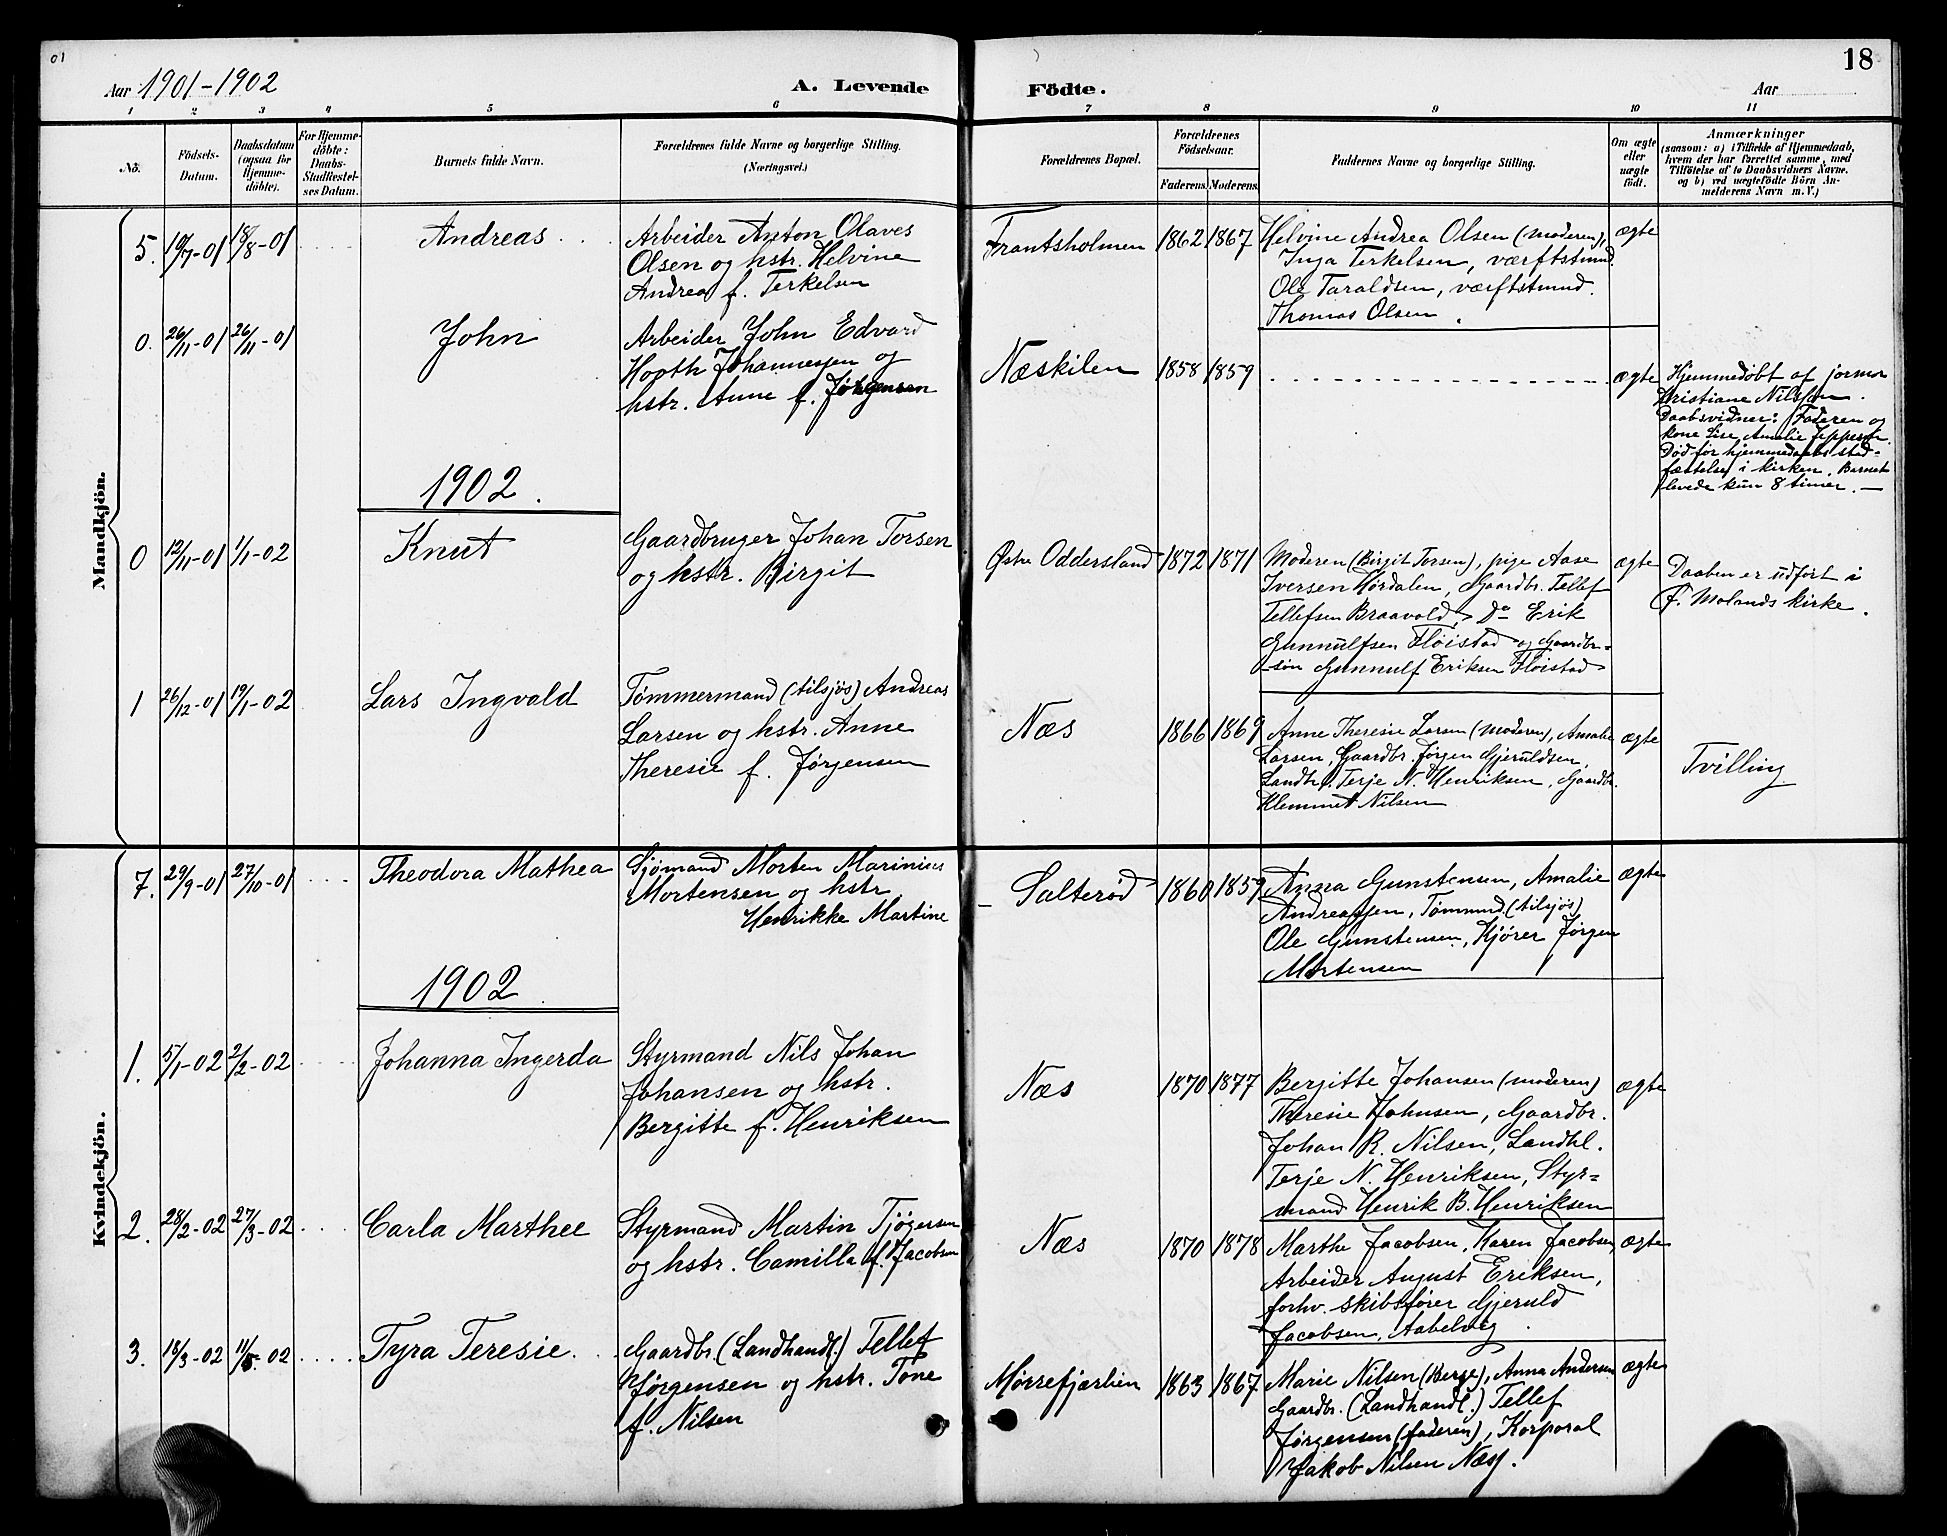 01
18
Aar 1901-1902
A. Levende
Födte.
Aar
1 2 3 4 5 6 7 8 9 10 11
No.
Födsels-
Datum.
Daabsdatum
(ogsaa for
Hjemme-
döbte).
For Hjemme-
döbte:
Daabs-
Stadfæstel-
ses Datum.
Barnets fulde Navn.
Forældrenes fulde Navne og borgerlige Stilling.
(Næringsvei.)
Forældrenes Bopæl.
Forældrenes
Födselsaar.
Faderens. Moderens.
Faddernes Navne og borgerlige Stilling.
Om ægte
eller
uægte
födt.
Anmærkninger
(saasom: a) i Tilfælde af Hjemmedaab,
hvem der har forrettet samme, med
Tilföielse af to Daabsvidners Navne.
og b) ved uægtefödte Börn An-
melderens Navn m. V.)
Mandkjön.
5. 19/7-01 18/8-01
Andreas
Arbeider Anton Olaves
Olsen og hstr. Helvine
Andrea f. Terkelsen
Frantsholmen 1862 1867
Helvine Andrea Olsen (moderen),
Inga Terkelsen, værftstmd.
Ole Taraldsen, værftstmd.
Thomas Olsen.
ægte
0. 26/11-01 26/11-01
John
Arbeider John Edvard
Hopth Johannesen og
hstr. Anne f. Jörgensen
Næskilen 1858 1859
ægte
Hjemmedøbt af jormor
Kristiane Nilssen.
Daabsvidner: Faderen og
kone Lise Amalie Jeppesen.
Död for hjemmedaabs stad-
fæstelse i kirken. Barnet
levede kun 8 timer.
1902.
0 12/11-01 1/1-02
Knut
Gaardbruger Johan Torsen
og hstr. Birgit
Østre Oddersland 1872 1871
Moderen (Birgit Torsen), pige Aase
Iversen Hørdalen, Gaardbr. Tellef
Tellefsen Braavold, Do Erik
Gunnulfsen Fløistad og Gaardbr-
søn Gunnulf Eriksen Fløistad
ægte
Daaben er udført i
Ø. Molands kirke.
1 26/12-01 19/1-02
Lars Ingvald
Tømmermand (tilsjøs) Andreas
Larsen og hstr. Anne
Theresie f. Jørgensen
Næs 1866 1869
Anne Theresie Larsen (moderen), Amalie
Larsen, Gaardbr. Jørgen Gjeruldsen,
Landhl. Terje N. Henriksen, Gaardbr.
Klemmet Nilsen
ægte
Tvilling
Kvindekjön.
7. 29/9-01 27/10-01
Theodora Mathea
Sjømand Morten Marinius
Mortensen og hstr
Henrikke Martine
Salterød 1860 1859
Anna Gunstensen, Amalie
Andreassen, Tømmmd. (tilsjøs)
Ole Gunstensen, Kjører Jørgen
Mortensen
ægte
1902
1. 5/1-02 2/2-02
Johanna Ingerda
Styrmand Nils Johan
Johansen og hstr.
Bergitte f. Henriksen
Næs 1870 1877
Bergitte Johansen (moderen)
Theresie Johnsen, Gaardbr.
Johan R. Nilsen, Landhl.
Terje N. Henriksen, Styr-
mand Henrik B. Henriksen
ægte
2. 28/2-02 27/3-02
Carla Marthee
Styrmand Martin Tjøgersen
og hstr. Camilla f. Jacobsen
Næs 1870 1878
Marthe Jacobsen, Karen Jacobsen,
Arbeider August Eriksen,
forhv. skibsfører Gjeruld
Jacobsen, Aabelvig.
ægte
3. 18/3-02 11/5-02
Tyra Teresie.
Gaardbr. (Landhandl.) Tellef
Jørgensen og hstr. Tone
f. Nilsen
Mørrefjærkien 1863 1867
Marie Nilsen (Berge), Anna Andersen
Gaardbr. (Landhandl.) Tellef
Jørgensen (faderen), Korporal
Jakob Nilsen Næs.
ægte